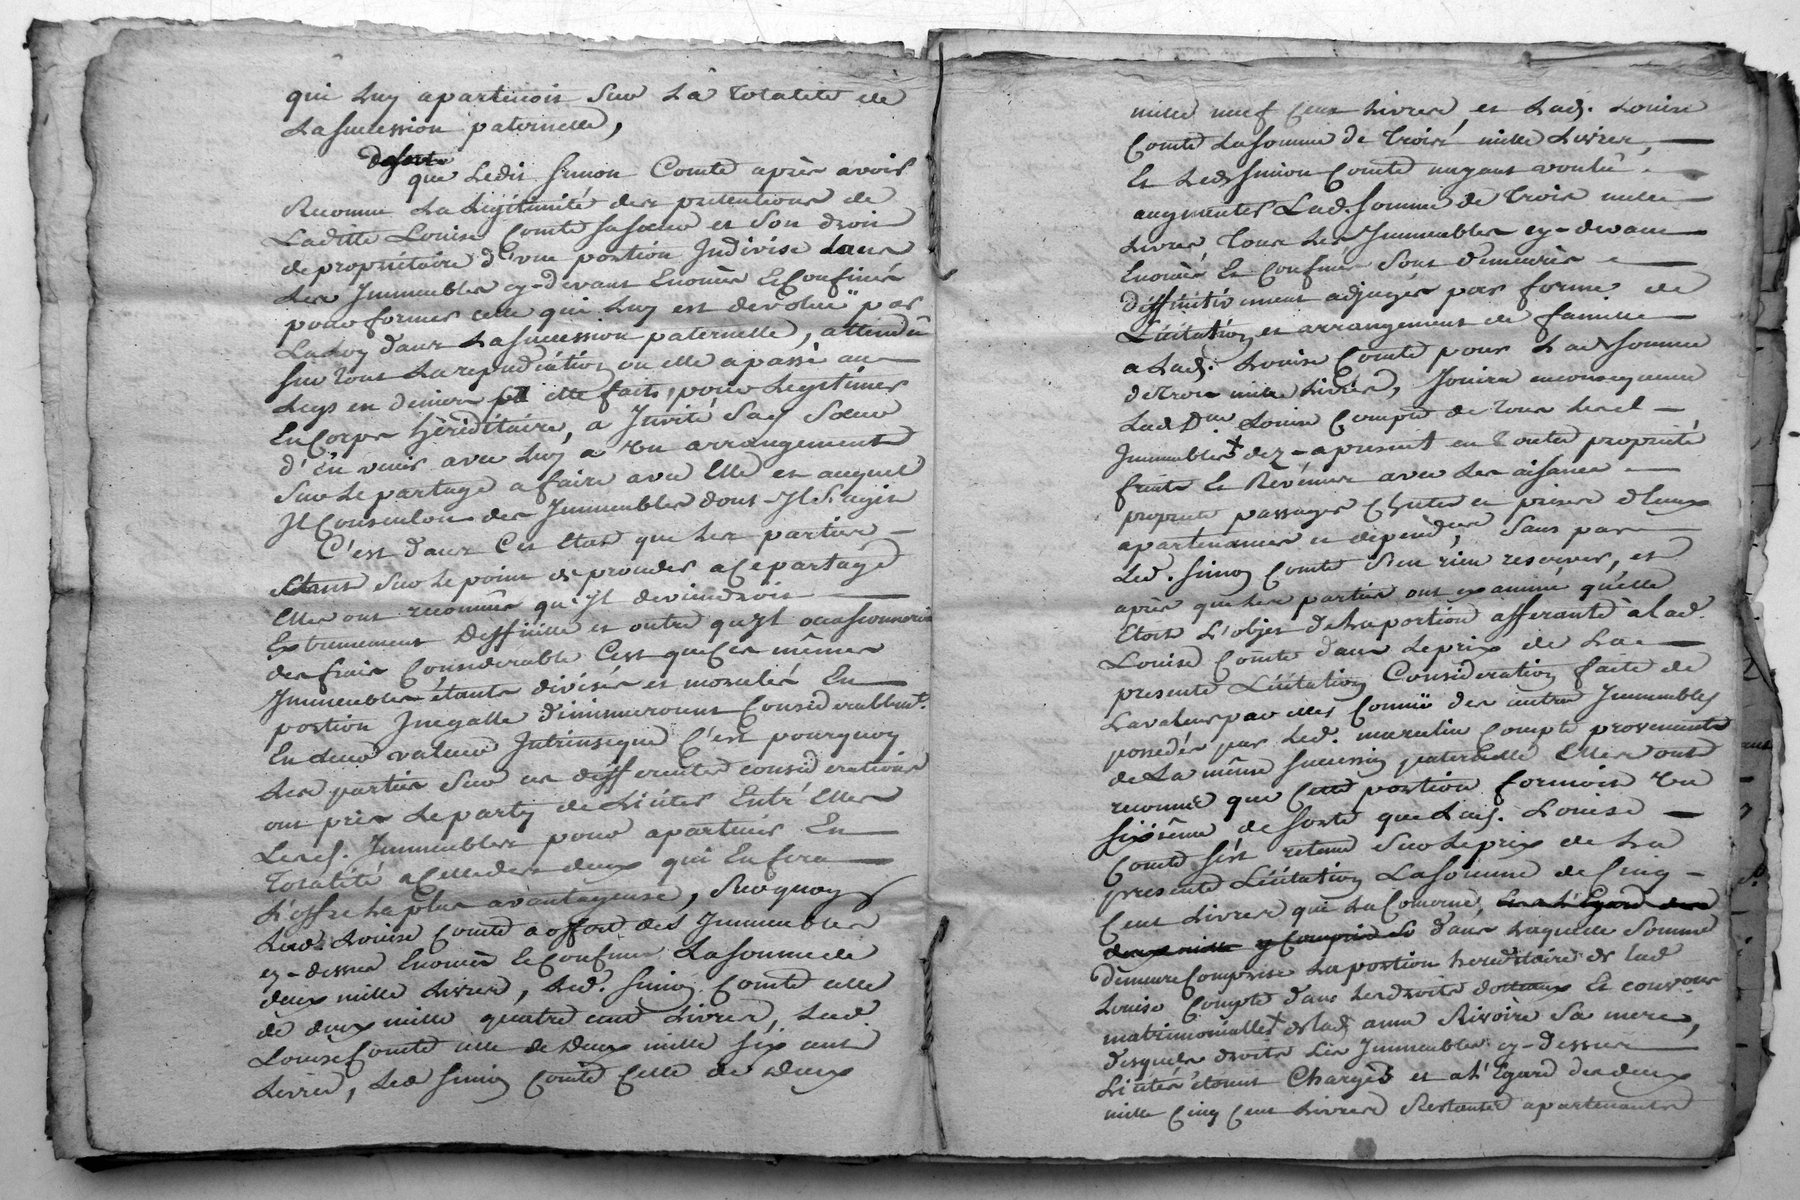 qui luy apartenoit sur la totalité de
la succession paternelle,
que ledit Simon Comte après avoir
Reconnu la légitimité des prétentions de
Laditte Louise Comte sa sœur et son droit
de propriétaire d'une portion Indivise dans
les Immeubles cy-devant Enoncés & Confinés
pour former celle qui luy est dévolüe par
La Loy dans la succession paternelle, attendû
sur tout la repudiation ou elle a passé au
legs en deniers à elle faits, pour légitimes
En Corps héréditaire, a Invité Sad. Sœur
d'En venir avec luy a un arrangement
Sur le partage a faire avec Elle et auquel
Il Consent des Immeubles dont Il s'agit
C'est dans Cet Etat que les parties
Etant sur le point de proceder a ce partage
Elles ont reconnus qu'Il deviendroit
Extremement Difficille et outre qu'Il occasionneroit
des frais Considerable C'est que ces mêmes
Immeubles étants divisés et morcelés En
portion Inegalle diminueroient Considerablemt.
En leur valeur Intrinseque C'est pourquoy
les parties Sur ces differentes considerations
ont pris le party de Liciter Entr'Elles
Lesd. Immeubles pour apartenir En
Totalité a Celle des deux qui En fera
L'offre la plus avantageuse, Surquoy
Lad. Louise Comte a offert des Immeubles
cy-dessus Enoncés & Confinés La somme de
deux mille livres, led. Simon Comte celle
de deux mille quatre cent livres, lad.
Louise Comte celle de Deux mille six cent
livres, led. Simon Comte Celle de Deux
mille neuf Cent livres, et lad. Louise
Comte la somme de Trois mille Livres,
Et led. Simon Comte n'ayant voulu
augmenter Lad. somme de Trois mille
livres Tous les Immeubles cy-devant
Enoncés Et Confinés sont demeurés
déffinitivement adjugés par forme de
Licitation et arrangement de famille
a lad. Louise Comte pour lad. somme
de Trois mille livres, Jouira en consequence
Lad. Dlle. Louise Compte de tous lesd.
Immeubles dez-apresent en toute propriété
fruits Et Revenus avec les aisances
propriété passages Chutes et prises d'Eaux
apartenances et dépendces, Sans par
Led. Simon Comte s'en rien reserver, et
après que les parties ont examiné qu'elle
Etoit L'objet de la portion afferante à lad.
Louise Comte dans le prix de la
presente Licitation Consideration faite de
La valeur par elles Connüe des autres Immeubles
possedés par led. marcelin Compte provenants
de La même succession paternelle Elles ont
reconnu que cette portion formoit un
sixième de sorte que Lad. Louise
Comte s'est retenu sur le prix de La
presente Licitation La somme de Cinq
Cent Livres qui la Concerne, Et a l'Egard des
deux mille y Comprise dans laquelle somme
demeure Comprise la portion hereditaire de lad
Louise Compte dans les droits dotaux Et
matrimoniaux de lad. anne Rivoire sa mere,
desquels droits les Immeubles cy-dessus
Licités étoient Chargés et a l'Egard des deux
mille Cinq Cent Livres Restantes apartenantes